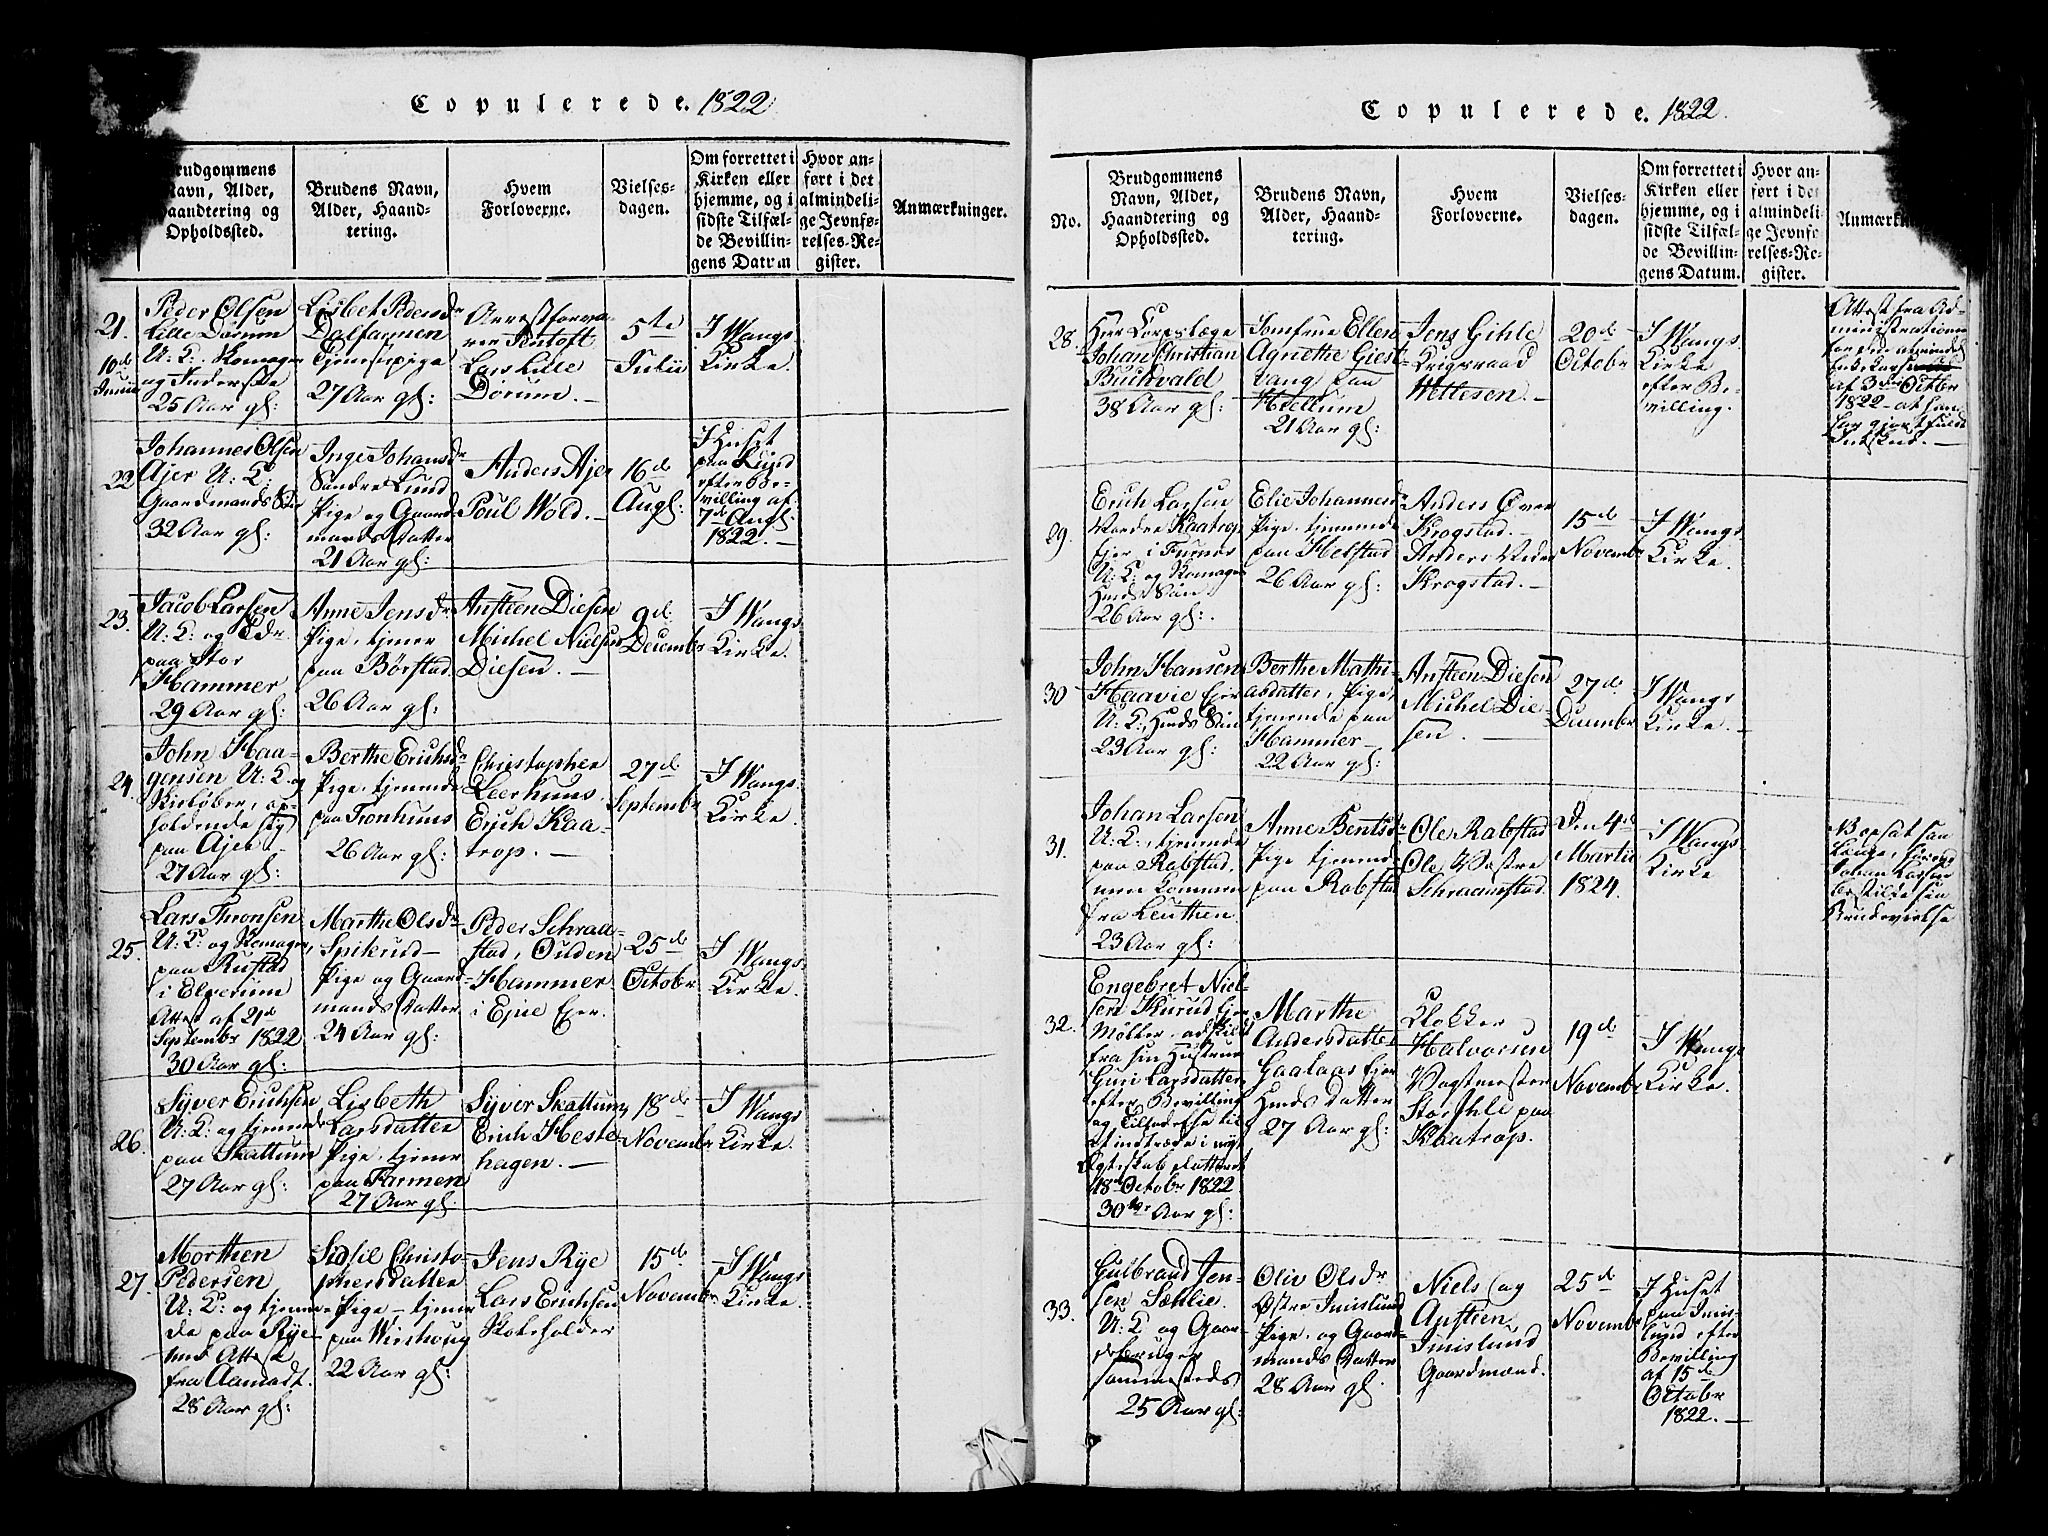 Copulerede. 1822
Brudgommens
Navn, Alder,
Haandtering og
Opholdssted.
Brudens Navn,
Alder, Haand-
tering.
Hvem
Forloverne.
Vielses-
dagen.
Om forrettet i
Kirken eller
hjemme, og i
sidste Tilfæl-
de Bevillin-
gens Datum
Hvor an-
ført i det
almindeli-
ge Jevnfø-
relses-Re-
gister.
Anmærkninger.
21.
10de
Junii
Peder Olsen
Lille Dørum
U: K:
og Inderste
25 Aar gl:
Lisbet Pedersdr
Dalfarmen
Tjenestepige
27 Aar gl:
Arrestforva-
rer Tentoft
Lars Lille
Dørum. –
5te
Julii
I Wangs
Kirke.
22
Johannes Olsen
Ajer U: K:
Gaardmands Søn
32 Aar gl:
Inge Johansdr
Søndre Lund
Pige og Gaard
mands Datter
21 Aar gl:
Anders Ajer
Poul Wold. –
16de
Augl:
I Huset
paa Lund
efter Be-
villing af
7de Augl.
1822. –
23.
Jacob Larsen
U: K: og
paa Stor
Hammer
29 Aar gl:
Anne Jensdr
Pige, tjener
paa Børstad
26 Aar gl:
Austeen Diesen
Michel Nielsen
Diesen. –
9de
Decembr
I Wangs
Kirke.
24.
John Haa-
gensen U: K. og
Skieløber, op-
holdende sig
paa Ajer –
27 Aar gl:
Berthe Erichsdr
Pige, tjenende
paa Tronhuus
26 Aar gl:
Christopher
Leerhuus
Erich Kaa-
trop. –
27de
Septembr
I Wangs
Kirke.
25.
Lars Thronsen
U: K: og Skomager
paa Rustad
i Elverum
Attest af 21de
Septembr 1822
30 Aar gl:
Marthe Olsdr
Spikrud –
Pige og Gaard-
mands Datter
24 Aar gl:
Peder Schraa-
stad, Ouden
Hammer
i Ejne Ejer.
25de
Octobr
I Wangs
Kirke.
26.
Syver Erichsen
U: K: og tjenende
paa Skattum
27 Aar gl:
Lisbeth
Larsdatter
Pige, tjener
paa Farmen
27 Aar gl.
Syver Skattum,
Erich Heste-
hagen. –
18de
Novembr
I Wangs
Kirke.
27.
Morthen
Pedersen
U: K: og tjenen-
de paa Rye –
med Attest
fra Aamodt.
28 Aar gl:
Sidsil Christo-
phersdatter
Pige – tjener
paa Wirshoug
22 Aar gl:
Jens Rye
Lars Erichsen
Kokeholder
15de
Novembr
I Wangs
Kirke.
Copulerede. 1822.
No.
Brudgommens
Navn, Alder,
Haandtering og
Opholdssted.
Brudens Navn,
Alder, Haand-
tering.
Hvem
Forloverne.
Vielses-
dagen.
Om forrettet i
Kirken eller
hjemme, og i
sidste Tilfæl-
de Bevillin-
gens Datum.
Hvor an-
ført i det
almindeli-
ge Jevnfø-
relses-Re-
gister.
Anmærkn
28.
Herr Corpslæge
Johan Christian
Buchvald
38 Aar gl:
Jomfrue Ellen
Agnethe Giest-
vang paa
Hiellum
21 Aar gl:
Jens Gihle
Krigsraad
Wellesen. –
20de
Octobr
I Wangs
Kirke
efter Be-
villing.
Attest fra Ad-
ministrationen
af 3die Octbr
1822 – at han
har gjort fuldt
Indskud. –
29.
Erich Larsen
Nordre Kaatrop
Ejer i Furnes
U: K: og Skomager
Huusm. Søn
26 Aar gl:.
Elie Johannesdr
Pige, tjenende
paa Helstad
26 Aar gl:
Anders Øvre
Krogstad. –
Anders Nedre
Krogstad. –
15de
Novembr
I Wangs
Kirke.
30
John Hansen
Haavie Ejer
U: K: Huusm. Søn
23 Aar gl:
Berthe Mathi-
asdatter, Pige,
tjenende paa
Hammer –
22 Aar gl:
Austeen Diesen
Michel Die-
sen. –
27de
Decembr
I Wangs
Kirke. –
31.
Johan Larsen
U: K:, tjenende
paa Rabstad,
men kommen
fra Leuthen
23 Aar gl:
Anne Bentsdr
Pige tjenende
paa Rabstad
Ole Rabstad
Ole Vestre
Schraamstad.
Den 4de
Martii
1824.
I Wangs
Kirke
NB opsat saa
længe, fordi
Johan Larsen
bestilte sin
Brudevielse
32.
Engebret Niel-
sen Kurud Ejer
Møller, adskildt
fra sin Hustrue
Guri Larsdatter
efter Bevilling
og Tilladelse til
at indtræde i nyt
Ægteskab dateret
18de Octobr 1822
30 Aar gl:
Marthe
Andersdatter
Gaalaas Ejer
Huusm. Datter
27 Aar gl:
Klokker
Halvorsen
Vagtmester
Stor Ihle paa
Kaatrop.
19de
Novembr
I Wangs
Kirke.
33.
Gulbrand Jen-
sen Sæhlie.
U: K og Gaar-
dbruger
sammesteds
25 Aar gl:
Oliv Olsdr
Østre Imislund
Pige og Gaard-
mands Datter
28 Aar gl.
Niels og
Austien
Imislund
Gaardmænd.
25de
Novembr
I Huset
paa Imis-
lund efter
Bevilling
af 15de
Octobr
1822. –